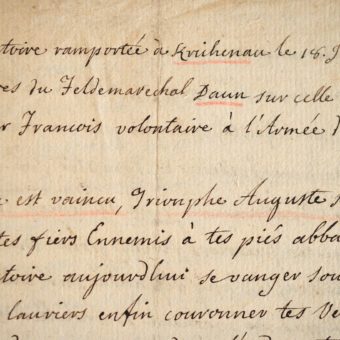 toire ramportée à Krichenau le 18. J
es du Feldemarechal Daun sur celle
r Francois volontaire à l'Armée
est vaincu, Triomphe Auguste
tes fiers Ennemis à tes piés abba
toire aujourdhui se vanger sou
lauriers enfin couronner tes Ve